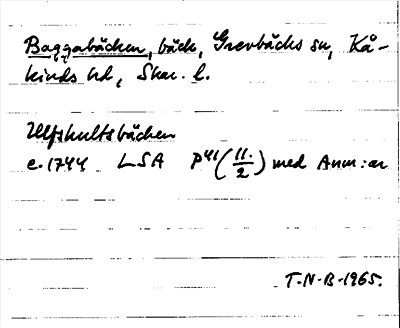 Baggabäcken, bäck, Grevbäcks sn, Kå-
kinds hd, Skar. l.
Ulfshultsbäcken
c. 1744 LSA P41 (11./2) med Anm:ar
T-N-B-1965.